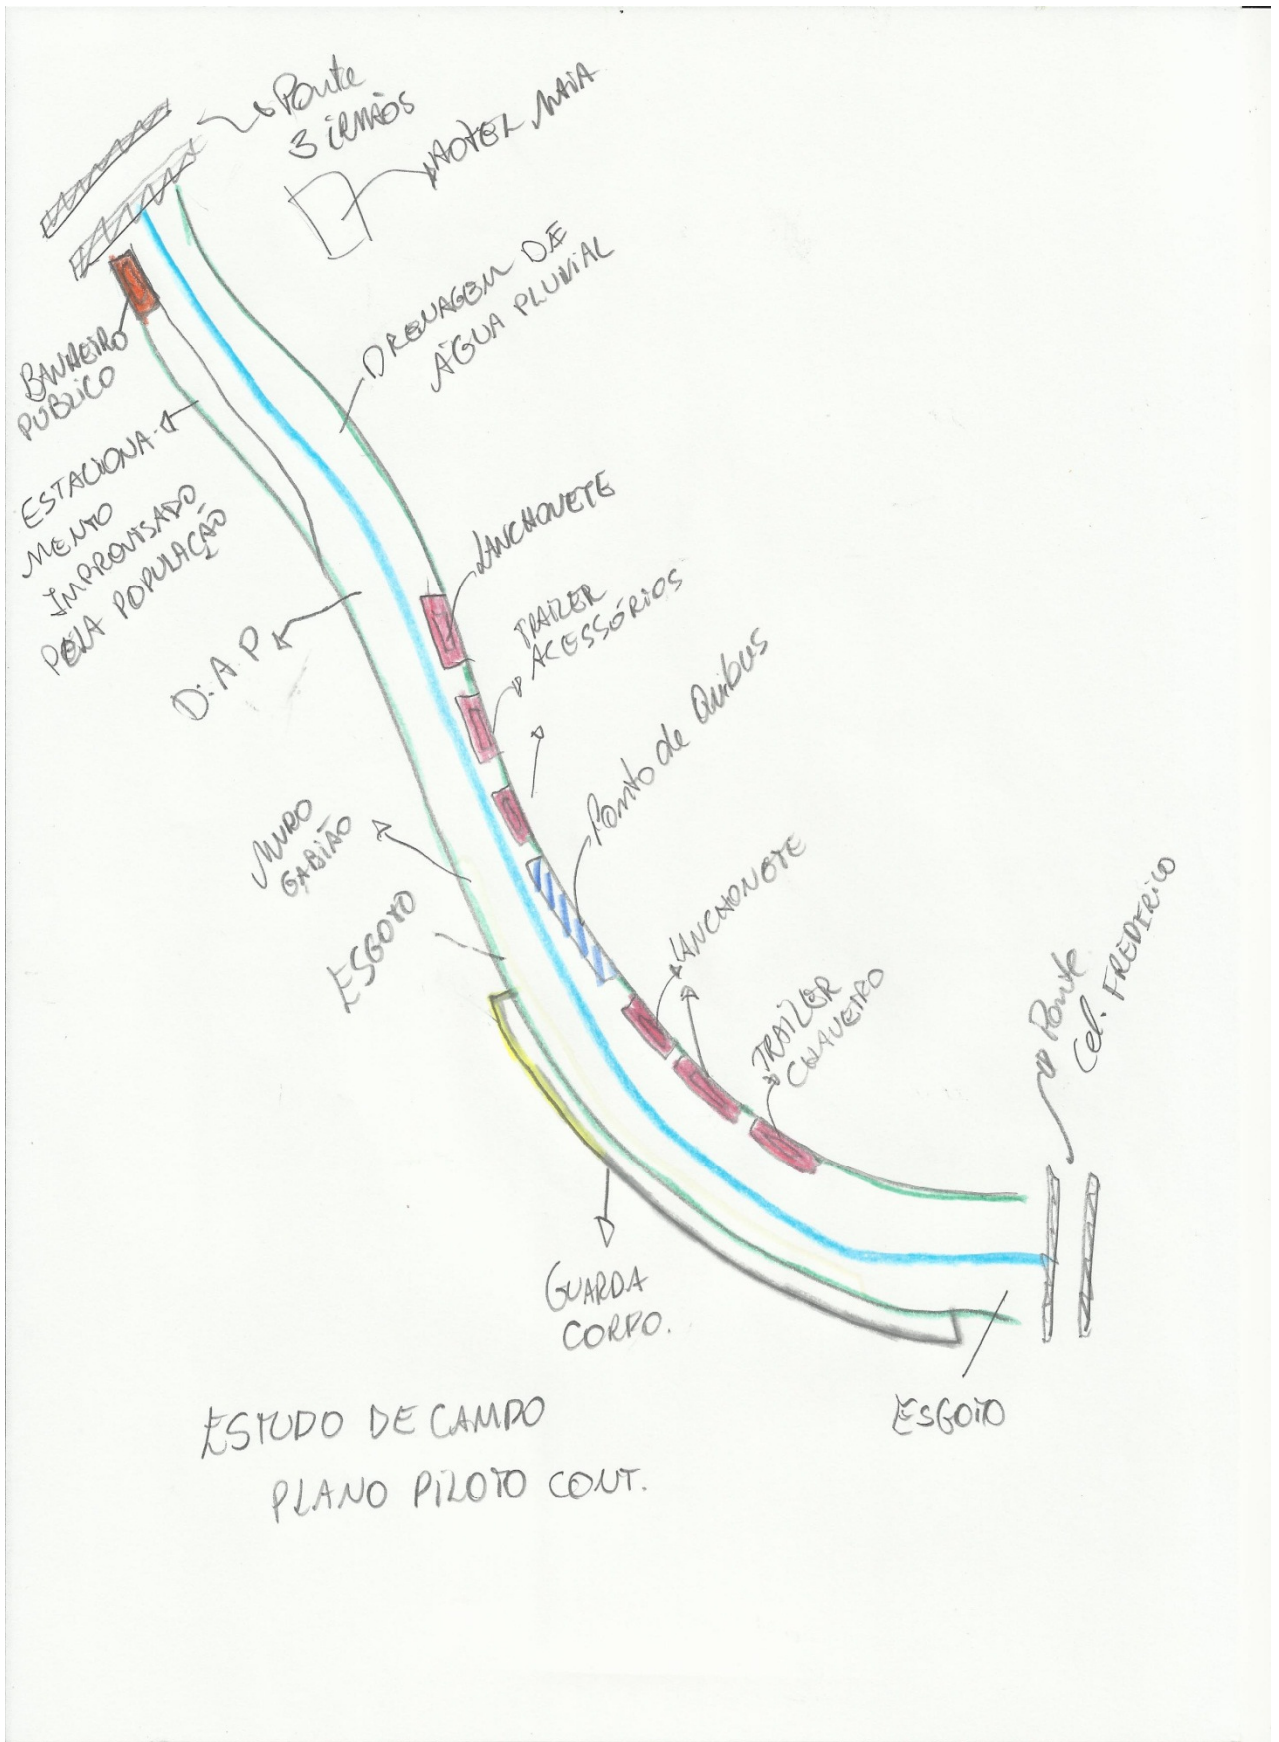 Ponte
3 irmãos
HOTEL MAIA
DRENAGEM DE
ÁGUA PLUVIAL
BANHEIRO
PÚBLICO
ESTACIONA-
MENTO
IMPROVISADO
PELA POPULAÇÃO
D.A.P
LANCHONETE
TRAILER
ACESSÓRIOS
Ponto de Ônibus
MURO
GABIÃO
ESGOTO
LANCHONETE
TRAILER
CHAVEIRO
Ponte
Cel. FREDERICO
GUARDA
CORPO.
ESGOTO
ESTUDO DE CAMPO
PLANO PILOTO CONT.